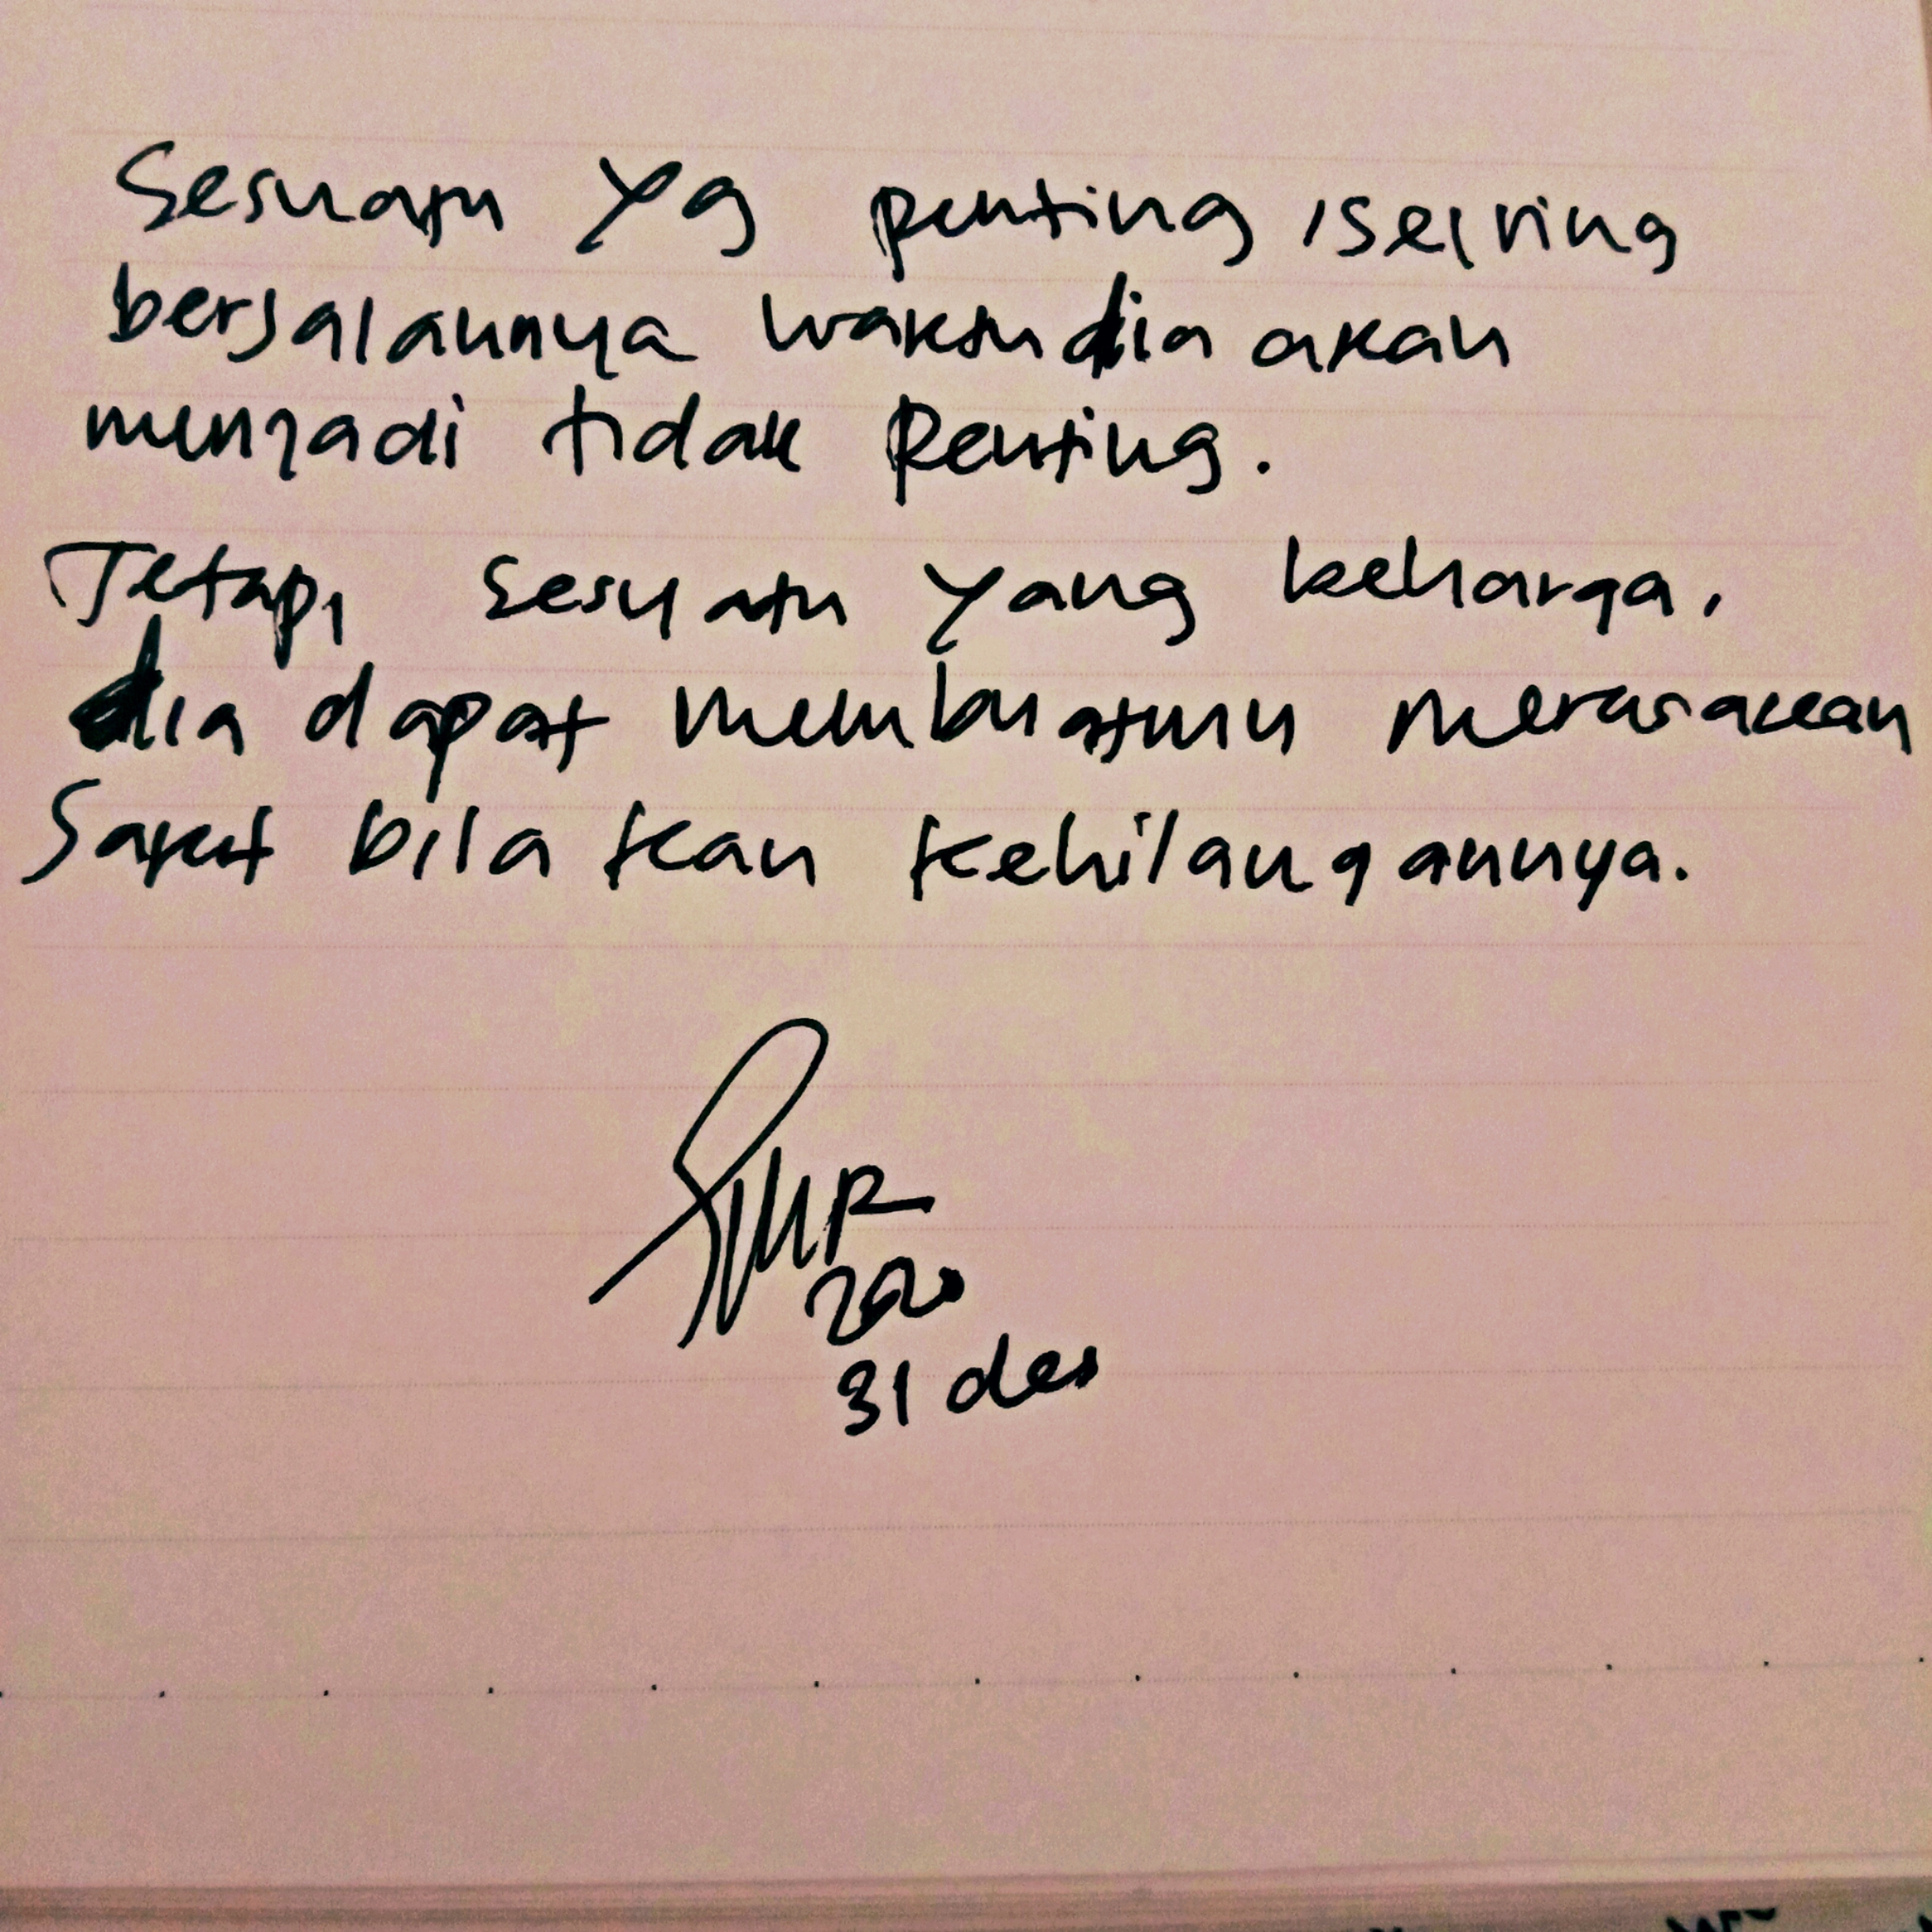 Sesuatu yg penting, seiring
bersalannya waktu dia akan
menjadi tidak penting.
Tetapi sesuatu yang beharga,
dia dapat membuatmu merasakan
Sakit bila kau kehilangannya.
31 des